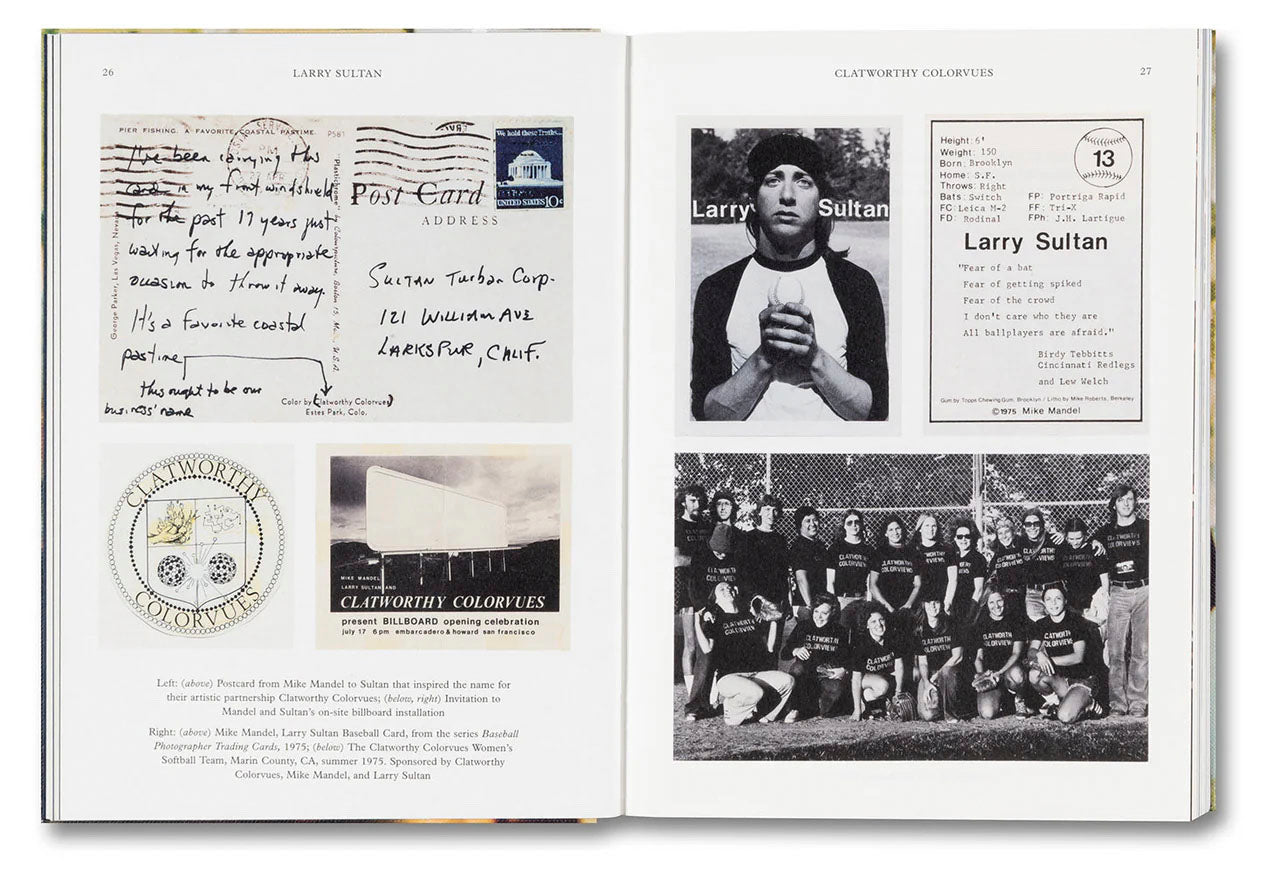 26
LARRY SULTAN
PIER FISHING. A FAVORITE COASTAL PASTIME.
P581
I've been carrying this
card in my front windshield
for the past 17 years just
waiting for the appropriate
occasion to throw it away.
It's a favorite coastal
pastime
this ought to be our
business' name
George Parker, Las Vegas, Nev.
"Plastichrome" by Colourpicture, Boston 15, Mass., U.S.A.
Color by Clatworthy Colorvues
Estes Park, Colo.
We hold these Truths...
UNITED STATES 10c
Post Card
ADDRESS
Sultan Turban Corp.
121 William Ave
Larkspur, Calif.
CLATWORTHY
COLORVUES
MIKE MANDEL
LARRY SULTAN AND
CLATWORTHY COLORVUES
present BILLBOARD opening celebration
july 17 6pm embarcadero & howard san francisco
Left: (above) Postcard from Mike Mandel to Sultan that inspired the name for
their artistic partnership Clatworthy Colorvues; (below, right) Invitation to
Mandel and Sultan's on-site billboard installation
Right: (above) Mike Mandel, Larry Sultan Baseball Card, from the series Baseball
Photographer Trading Cards, 1975; (below) The Clatworthy Colorvues Women's
Softball Team, Marin County, CA, summer 1975. Sponsored by Clatworthy
Colorvues, Mike Mandel, and Larry Sultan
CLATWORTHY COLORVUES
27
Larry Sultan
Height: 6'
Weight: 150
Born: Brooklyn
Home: S.F.
Throws: Right
Bats: Switch
FC: Leica M-2
FD: Rodinal
13
FP: Portriga Rapid
FF: Tri-X
FPh: J.H. Lartigue
Larry Sultan
"Fear of a bat
Fear of getting spiked
Fear of the crowd
I don't care who they are
All ballplayers are afraid."
Birdy Tebbitts
Cincinnati Redlegs
and Lew Welch
Gum by Topps Chewing Gum, Brooklyn / Litho by Mike Roberts, Berkeley
©1975 Mike Mandel
CLATWORTHY
COLORVIEWS